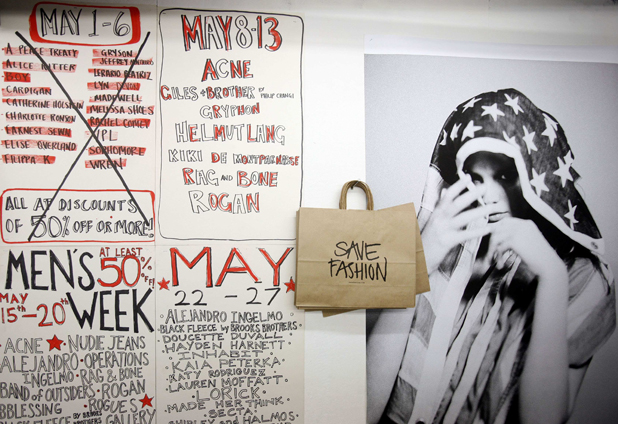 MAY 1-6
A PEACE TREATY
ALICE RITTER
BOY
CARDIGAN
CATHERINE HOLSTEIN
CHARLOTTE RONSON
EARNEST SEWN
ELISE OVERLAND
FILIPPA K
GRYSON
JEFFREY MONTEIRO
LERARIO BEATRIZ
LYN DEVON
MADEWELL
MELISSA SHOES
RACHEL COMEY
VPL
SOPHOMORE
WREN
ALL AT DISCOUNTS
OF 50% OFF OR MORE!
MAY 8-13
ACNE
GILES + BROTHER BY PHILIP CRANGI
GRYPHON
HELMUT LANG
KIKI DE MONTPARNASSE
RAG AND BONE
ROGAN
MEN'S
WEEK
AT LEAST
50%
OFF!
MAY
15th-20th
ACNE
ALEJANDRO
INGELMO
BAND OF OUTSIDERS
BBLESSING
BLACK FLEECE BY BROOKS
NUDIE JEANS
OPERATIONS
RAG & BONE
ROGAN
ROGUES
GALLERY
MAY
22 - 27
ALEJANDRO INGELMO
BLACK FLEECE BY BROOKS BROTHERS
DOUCETTE DUVALL
HAYDEN HARNETT
INHABIT
KAIA PETERKA
KATY RODRIGUEZ
LAUREN MOFFATT
LORICK
MADE HER THINK
SECTA
SHIPLEY AND HALMOS
SAVE
FASHION